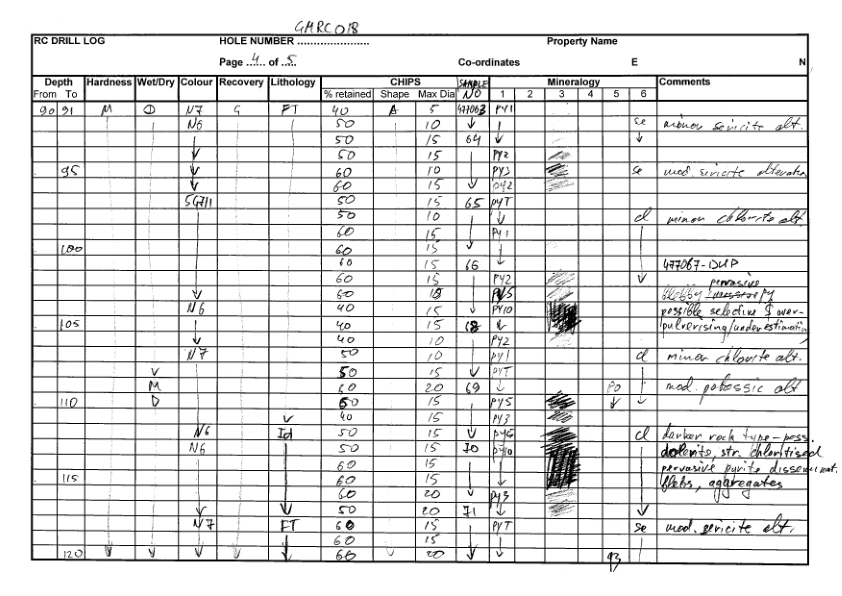 GHRC018
RC DRILL LOG HOLE NUMBER ...................... Property Name
Page 4 of 5 Co-ordinates E N
Depth Hardness Wet/Dry Colour Recovery Lithology CHIPS SAMPLE Mineralogy Comments
From To % retained Shape Max Dia NO 1 2 3 4 5 6
90 91 M D N7 G FT 40 A 5 477063 PY1
N6 50 10 ↓ se minor sericite alt.
50 15 64 ↓ ↓
↓ 50 15 PY2
95 ↓ 60 10 PY3 se mod. sericite alteration
↓ 60 15 ↓ py2
5G7/1 50 15 65 pyT
50 10 ↓ cl minor chlorite alt.
60 15 PY1
100 60 15 ↓
60 15 66 ↓ 477067-DUP
60 15 PY2 ↓ pervasive
↓ 60 15 PY5 blebby py
N6 40 15 ↓ PY10 possible selective & over-
105 40 15 68 ↓ pulverising/underestimating
↓ 40 10 PY2
N7 50 10 py1 cl minor chlorite alt.
↓ 50 15 ↓ PYT
M 60 20 69 ↓ Po mod. potassic alt
110 D 60 15 PY5 ↓ ↓
↓ 40 15 PY3
N6 Id 50 15 ↓ py6 cl darker rock type-poss.
N6 50 15 70 py10 dolerite, str. chloritised
60 15 pervasive purite disseminat.
115 60 15 ↓ blebs, aggregates
60 20 ↓ py3
↓ ↓ 50 20 71 ↓ ↓
N7 FT 60 15 PYT se mod. sericite alt.
60 15
120 ↓ ↓ ↓ ↓ ↓ 60 ↓ 20 ↓ ↓ 93